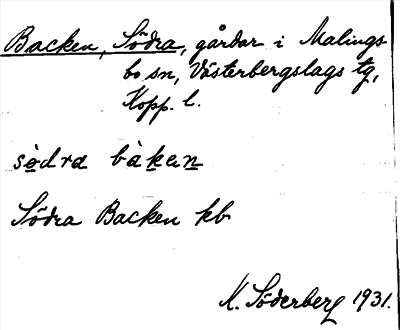 Backen, Södra, gårdar i Malings-
bo sn, Västerbergslags tg,
Kopp. l.
sö̀dra bàkan
Södra Backen kb
K. Söderberg 1931.